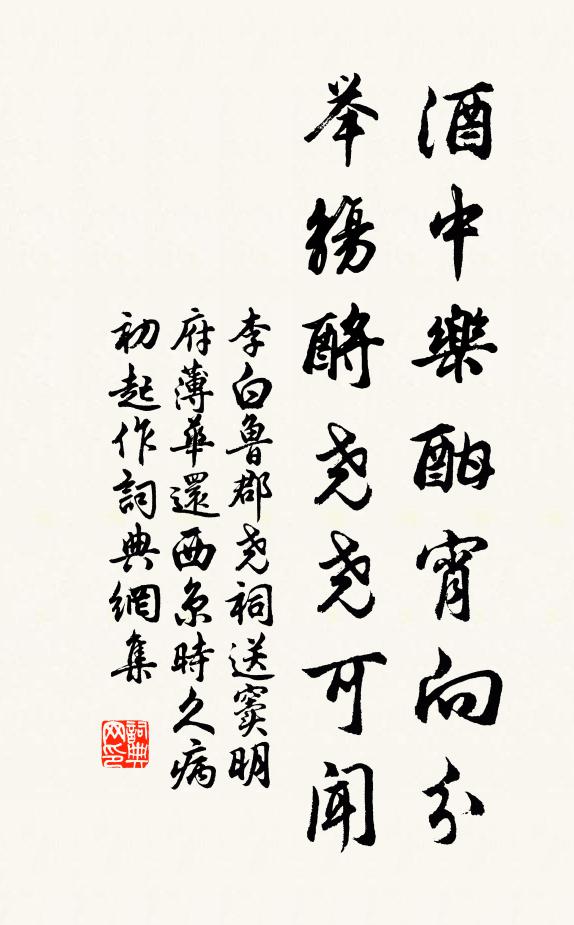 酒中樂酣宵向分
举觴酹尧尧可聞
李白魯郡尧祠送竇明
府薄華還西京時久病
初起作詞典網集
詞典網印